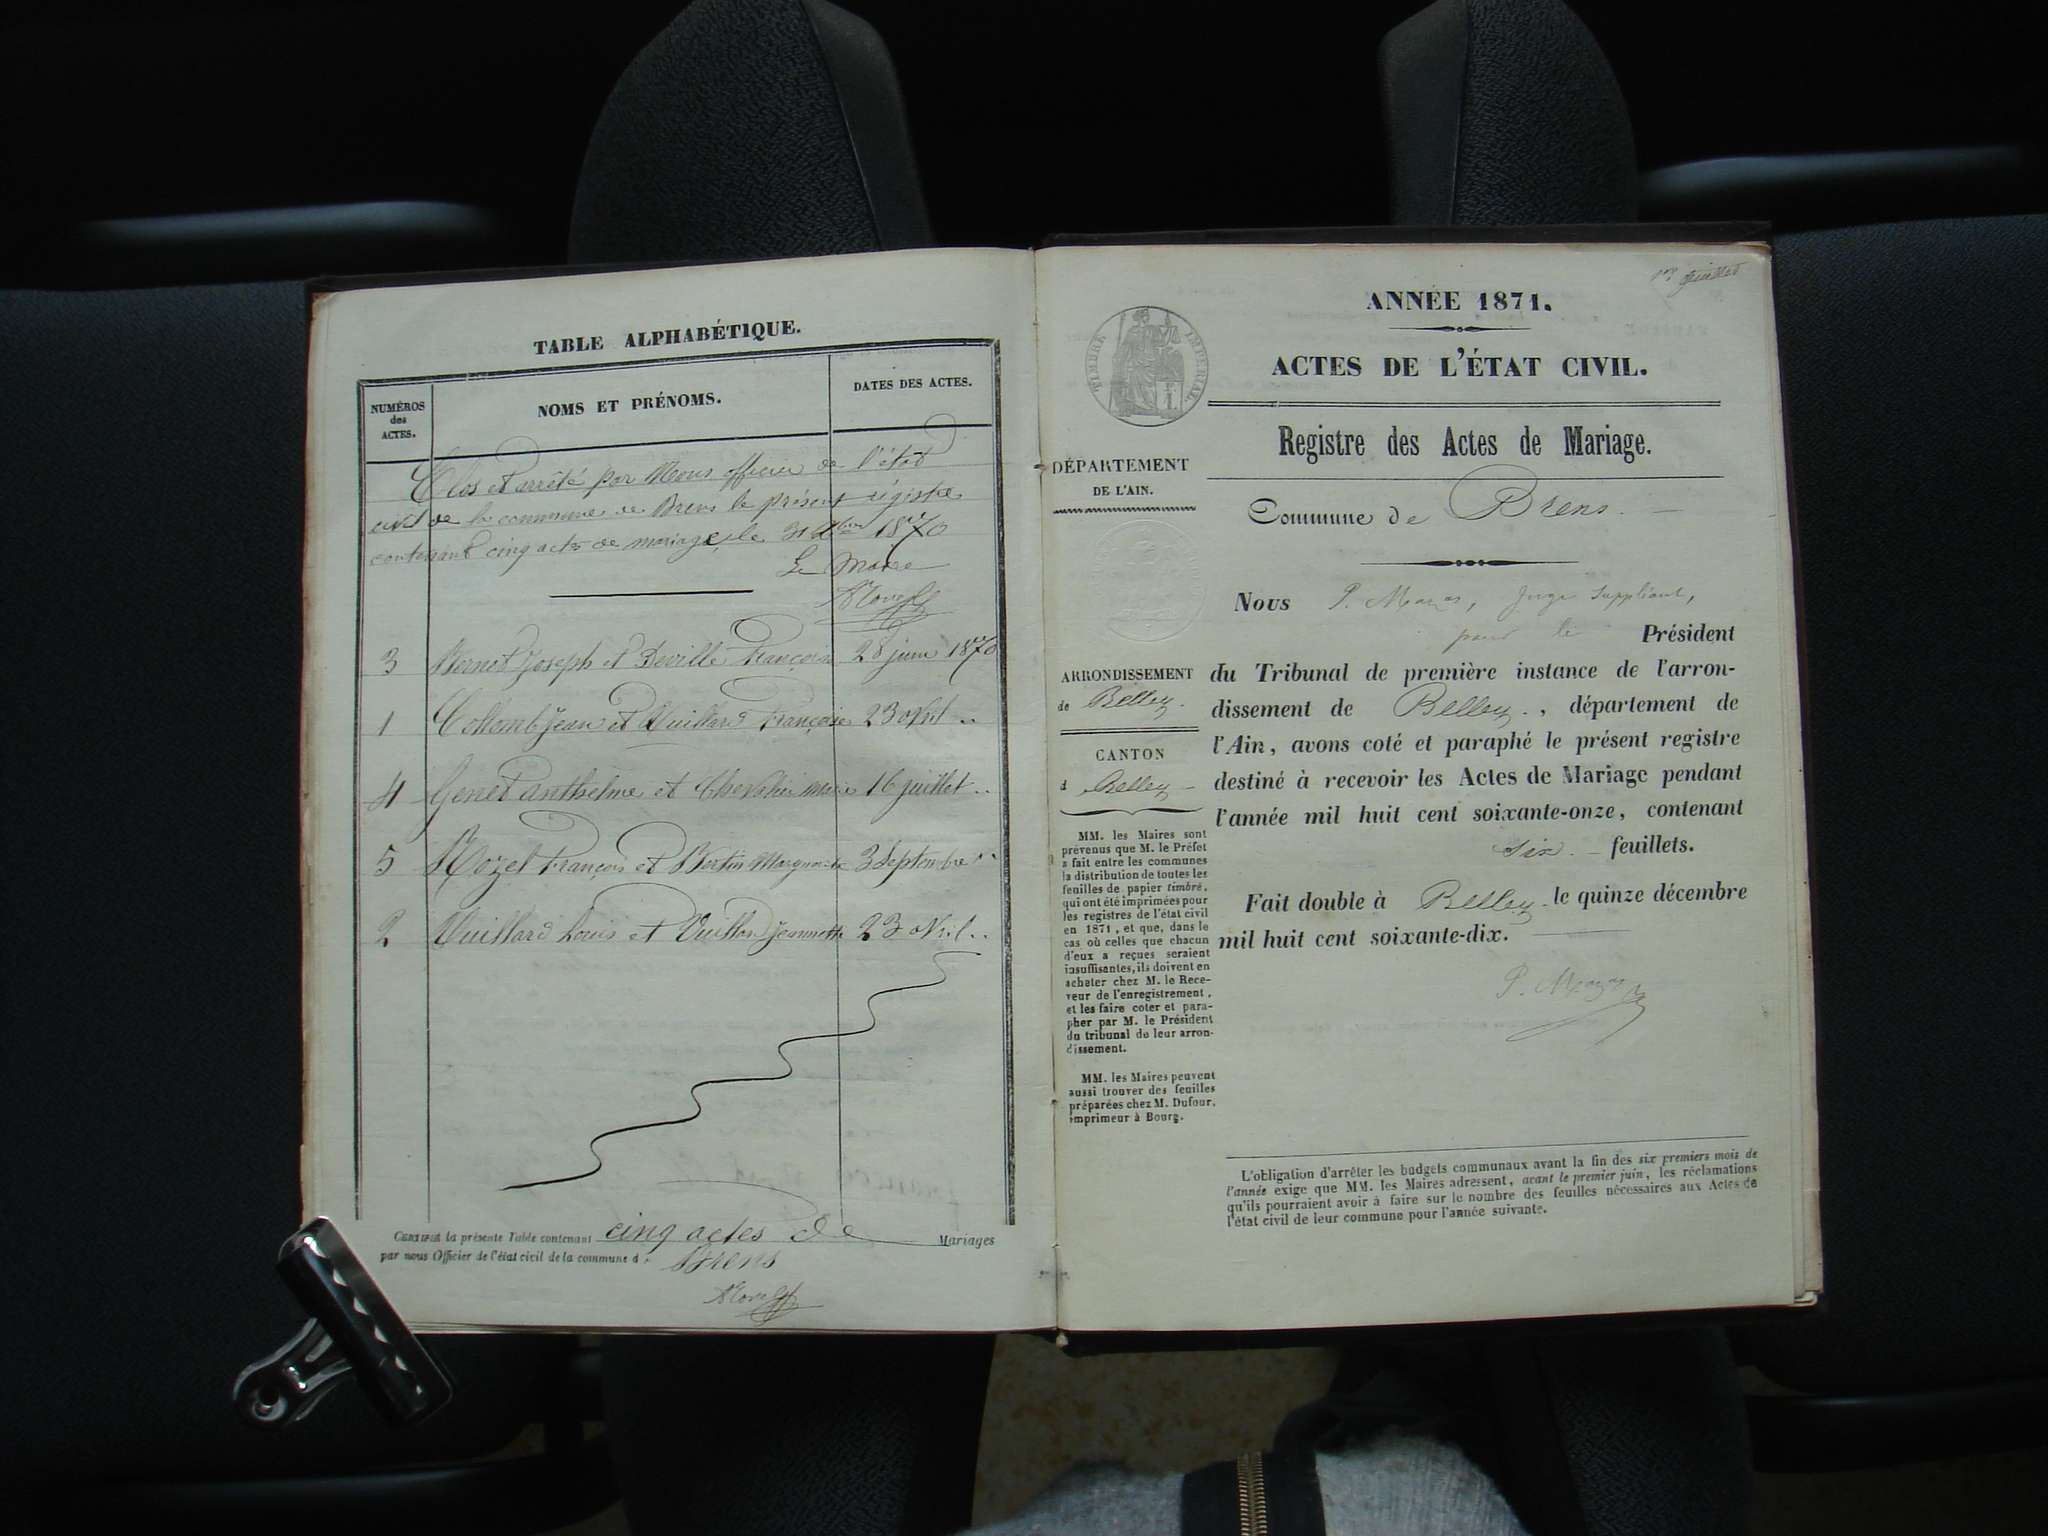 TABLE ALPHABÉTIQUE.
NUMÉROS
des
ACTES.
NOMS ET PRÉNOMS.
DATES DES ACTES.
Clos et arrêté par Nous officier de l'état
civil de la commune de Brens le présent régistre
contenant cinq actes de mariage, le 31 Xbre 1870
Le Maire
3 Bernet Joseph et Deville Françoise 28 juin 1870
1 Collomb Jean et Vuillard Françoise 23 avril ..
4 Genet anthelme et Chevalier Marie 16 juillet ..
5 Mozet François et Bertin Marguerite 3 Septembre ..
2 Vuillard Louis et Vuillard Jeannette 23 avril ..
CERTIFIÉE la présente Table contenant cinq actes de Mariages
par nous Officier de l'état civil de la commune d Brens
1er feuillet
ANNÉE 1871.
TIMBRE IMPERIAL
ACTES DE L'ÉTAT CIVIL.
Registre des Actes de Mariage.
DÉPARTEMENT
DE L'AIN.
Commune de Brens.
Nous P. Mazas, Juge Suppléant,
pour le Président
ARRONDISSEMENT
de Belley.
CANTON
d Belley
du Tribunal de première instance de l'arron-
dissement de Belley, département de
l'Ain, avons coté et paraphé le présent registre
destiné à recevoir les Actes de Mariage pendant
l'année mil huit cent soixante-onze, contenant
six feuillets.
Fait double à Belley le quinze décembre
mil huit cent soixante-dix.
MM. les Maires sont
prévenus que M. le Préfet
a fait entre les communes
la distribution de toutes les
feuilles de papier timbré,
qui ont été imprimées pour
les registres de l'état civil
en 1871, et que, dans le
cas où celles que chacun
d'eux a reçues seraient
insuffisantes, ils doivent en
acheter chez M. le Rece-
veur de l'enregistrement,
et les faire coter et para-
pher par M. le Président
du tribunal de leur arron-
dissement.
MM. les Maires peuvent
aussi trouver des feuilles
préparées chez M. Dufour,
imprimeur à Bourg.
P. Mazas
L'obligation d'arrêter les budgets communaux avant la fin des six premiers mois de
l'année exige que MM. les Maires adressent, avant le premier juin, les réclamations
qu'ils pourraient avoir à faire sur le nombre des feuilles nécessaires aux Actes de
l'état civil de leur commune pour l'année suivante.